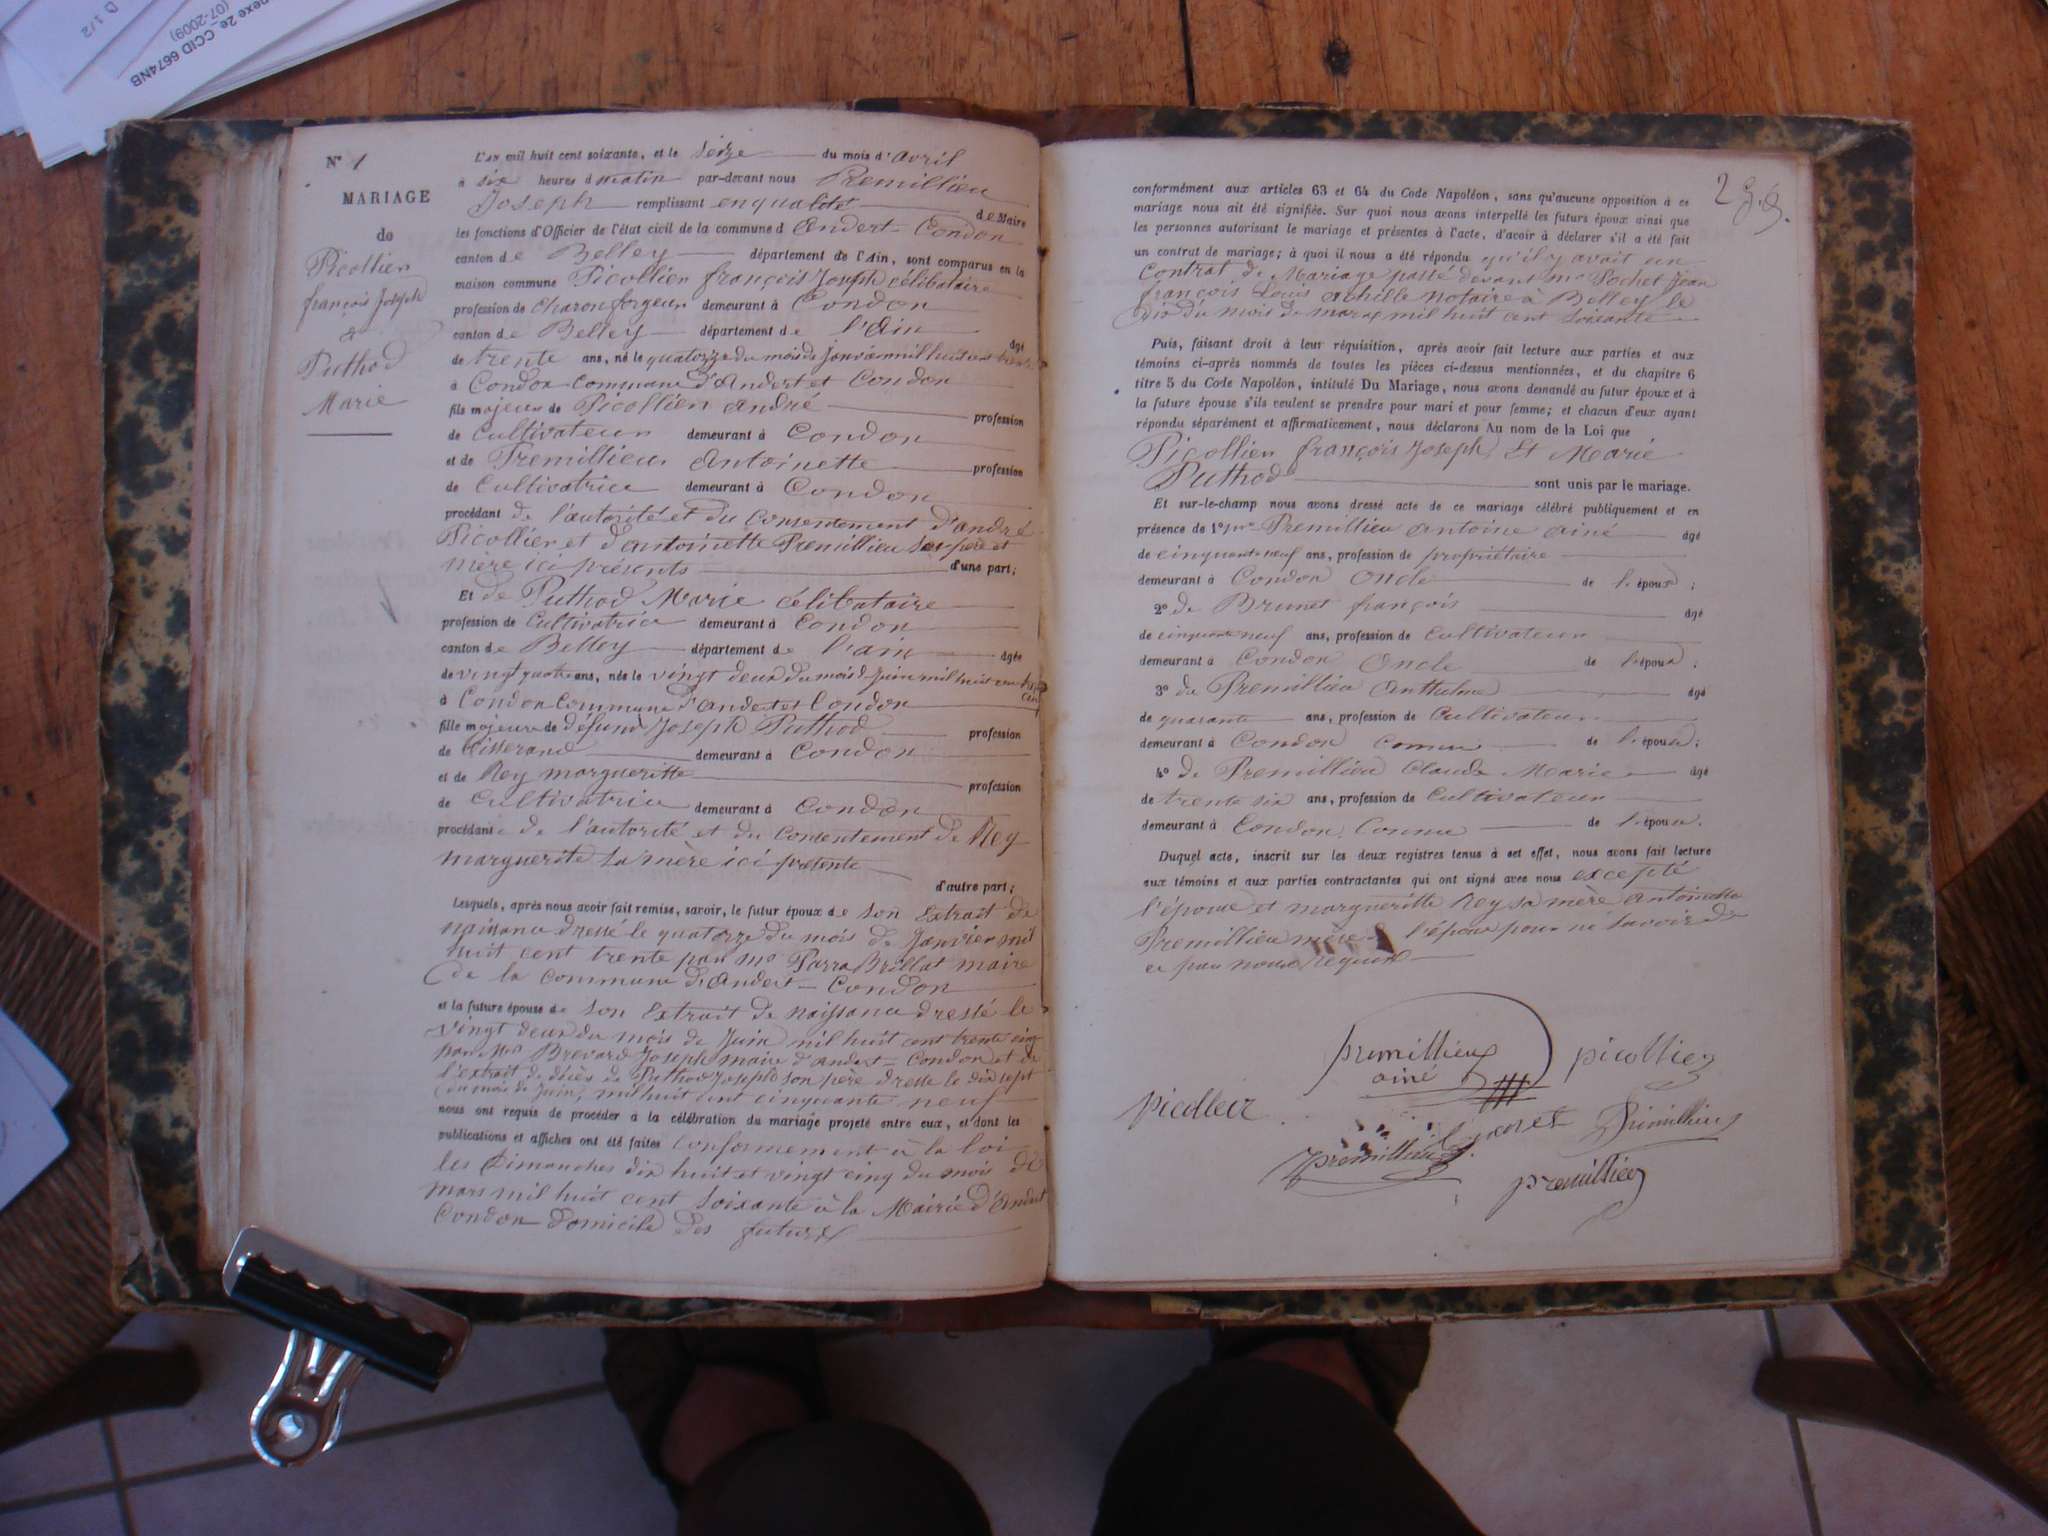 nexe 2e CCID 6674NB
(07-2009)
D 1/2
N° 1
MARIAGE
de
Picollien
françois Joseph
&
Puthod
Marie
L'an mil huit cent soixante, et le seize du mois d'avril
à six heures d matin par-devant nous Premillieu
Joseph remplissant en qualité de Maire
les fonctions d'Officier de l'état civil de la commune d Andert-Condon
canton de Belley département de l'Ain, sont comparus en la
maison commune Picollien françois Joseph célibataire
profession de charon forgeur demeurant à Condon
canton de Belley département de l'Ain âgé
de trente ans, né le quatorze du mois de janvier mil huit cent trente
à Condon commune d'Andert et Condon
fils majeur de Picollien andré profession
de Cultivateur demeurant à Condon
et de Premillieu Antoinette profession
de Cultivatrice demeurant à Condon
procédant de l'autorité et du Consentement d'andré
Picollien et d'antoinette Premillieu ses père et
mère ici présents d'une part;
Et de Puthod Marie célibataire
profession de Cultivatrice demeurant à Condon
canton de Belley département de l'ain âgée
de vingt quatre ans, née le vingt deux du mois de Juin mil huit cent trente cinq
à Condon Commune d'Andert et Condon
fille majeure de défunt Joseph Puthod profession
de tisserand demeurant à Condon
et de Rey margueritte profession
de Cultivatrice demeurant à Condon
procédante de l'autorité et du Consentement de Rey
marguerite sa mère ici présente
d'autre part;
Lesquels, après nous avoir fait remise, savoir, le futur époux de son Extrait de
naissance dressé le quatorze du mois de Janvier mil
huit cent trente par mr Parra Brillat maire
de la commune d'Andert-Condon
et la future épouse de son Extrait de naissance dressé le
vingt deux du mois de Juin mil huit cent trente cinq
par Mr Brevard Joseph maire d'andert-Condon et de
l'extrait de décès de Puthod Joseph son père dressé le dix sept
du mois de Juin, mil huit cent cinquante neuf
nous ont requis de procéder à la célébration du mariage projeté entre eux, et dont les
publications et affiches ont été faites Conformément à la loi
les Dimanches dix huit et vingt cinq du mois de
Mars mil huit cent soixante à la Mairie d'Andert
Condon domicile des futurs
conformément aux articles 63 et 64 du Code Napoléon, sans qu'aucune opposition à ce
mariage nous ait été signifiée. Sur quoi nous avons interpellé les futurs époux ainsi que
les personnes autorisant le mariage et présentes à l'acte, d'avoir à déclarer s'il a été fait
un contrat de mariage; à quoi il nous a été répondu qu'il y avait un
Contrat de Mariage passé devant me Pochet Jean
françois Louis achille Notaire à Belley le
Dix du mois de mars mil huit cent soixante
Puis, faisant droit à leur réquisition, après avoir fait lecture aux parties et aux
témoins ci-après nommés de toutes les pièces ci-dessus mentionnées, et du chapitre 6
titre 5 du Code Napoléon, intitulé Du Mariage, nous avons demandé au futur époux et à
la future épouse s'ils veulent se prendre pour mari et pour femme; et chacun d'eux ayant
répondu séparément et affirmativement, nous déclarons Au nom de la Loi que
Picollien françois Joseph Et Marie
Puthod sont unis par le mariage.
Et sur-le-champ nous avons dressé acte de ce mariage célébré publiquement et en
présence de 1° Mr Premillieu antoine ainé âgé
de cinquante neuf ans, profession de propriétaire
demeurant à Condon Oncle de l'époux;
2° de Brunet françois âgé
de cinquante neuf ans, profession de Cultivateur
demeurant à Condon Oncle de l'époux;
3° du Premillieu Anthelme âgé
de quarante ans, profession de Cultivateur
demeurant à Condon Connu de l'époux;
4° de Premillieu Claude Marie âgé
de trente six ans, profession de Cultivateur
demeurant à Condon Connu de l'époux.
Duquel acte, inscrit sur les deux registres tenus à cet effet, nous avons fait lecture
aux témoins et aux parties contractantes qui ont signé avec nous excepté
l'épouse et margueritte Rey sa mère Antoinette
Premillieu mère de l'époux pour ne savoir de
ce par nous requis
premillieux
ainé
picollien
picollien
Brunet
Premillieu
premillieu J.
premillieu